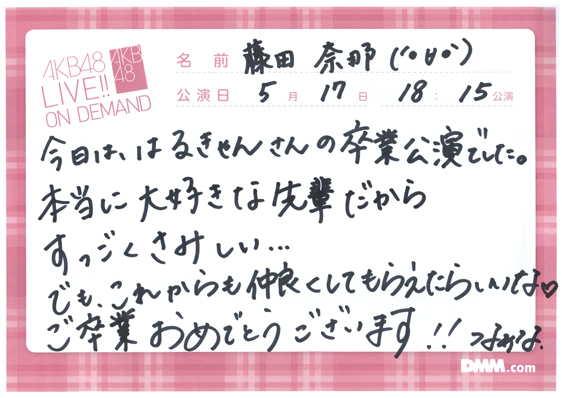 AKB48
LIVE!!
ON DEMAND
AKB
48
名前 藤田 奈那
公演日 5月 17日 18:15公演
今日は、はるきゃんさんの卒業公演でした。
本当に大好きな先輩だから
すっごくさみしい…
でも、これからも仲良くしてもらえたらいいな♡
ご卒業おめでとうございます!!
DMM.com